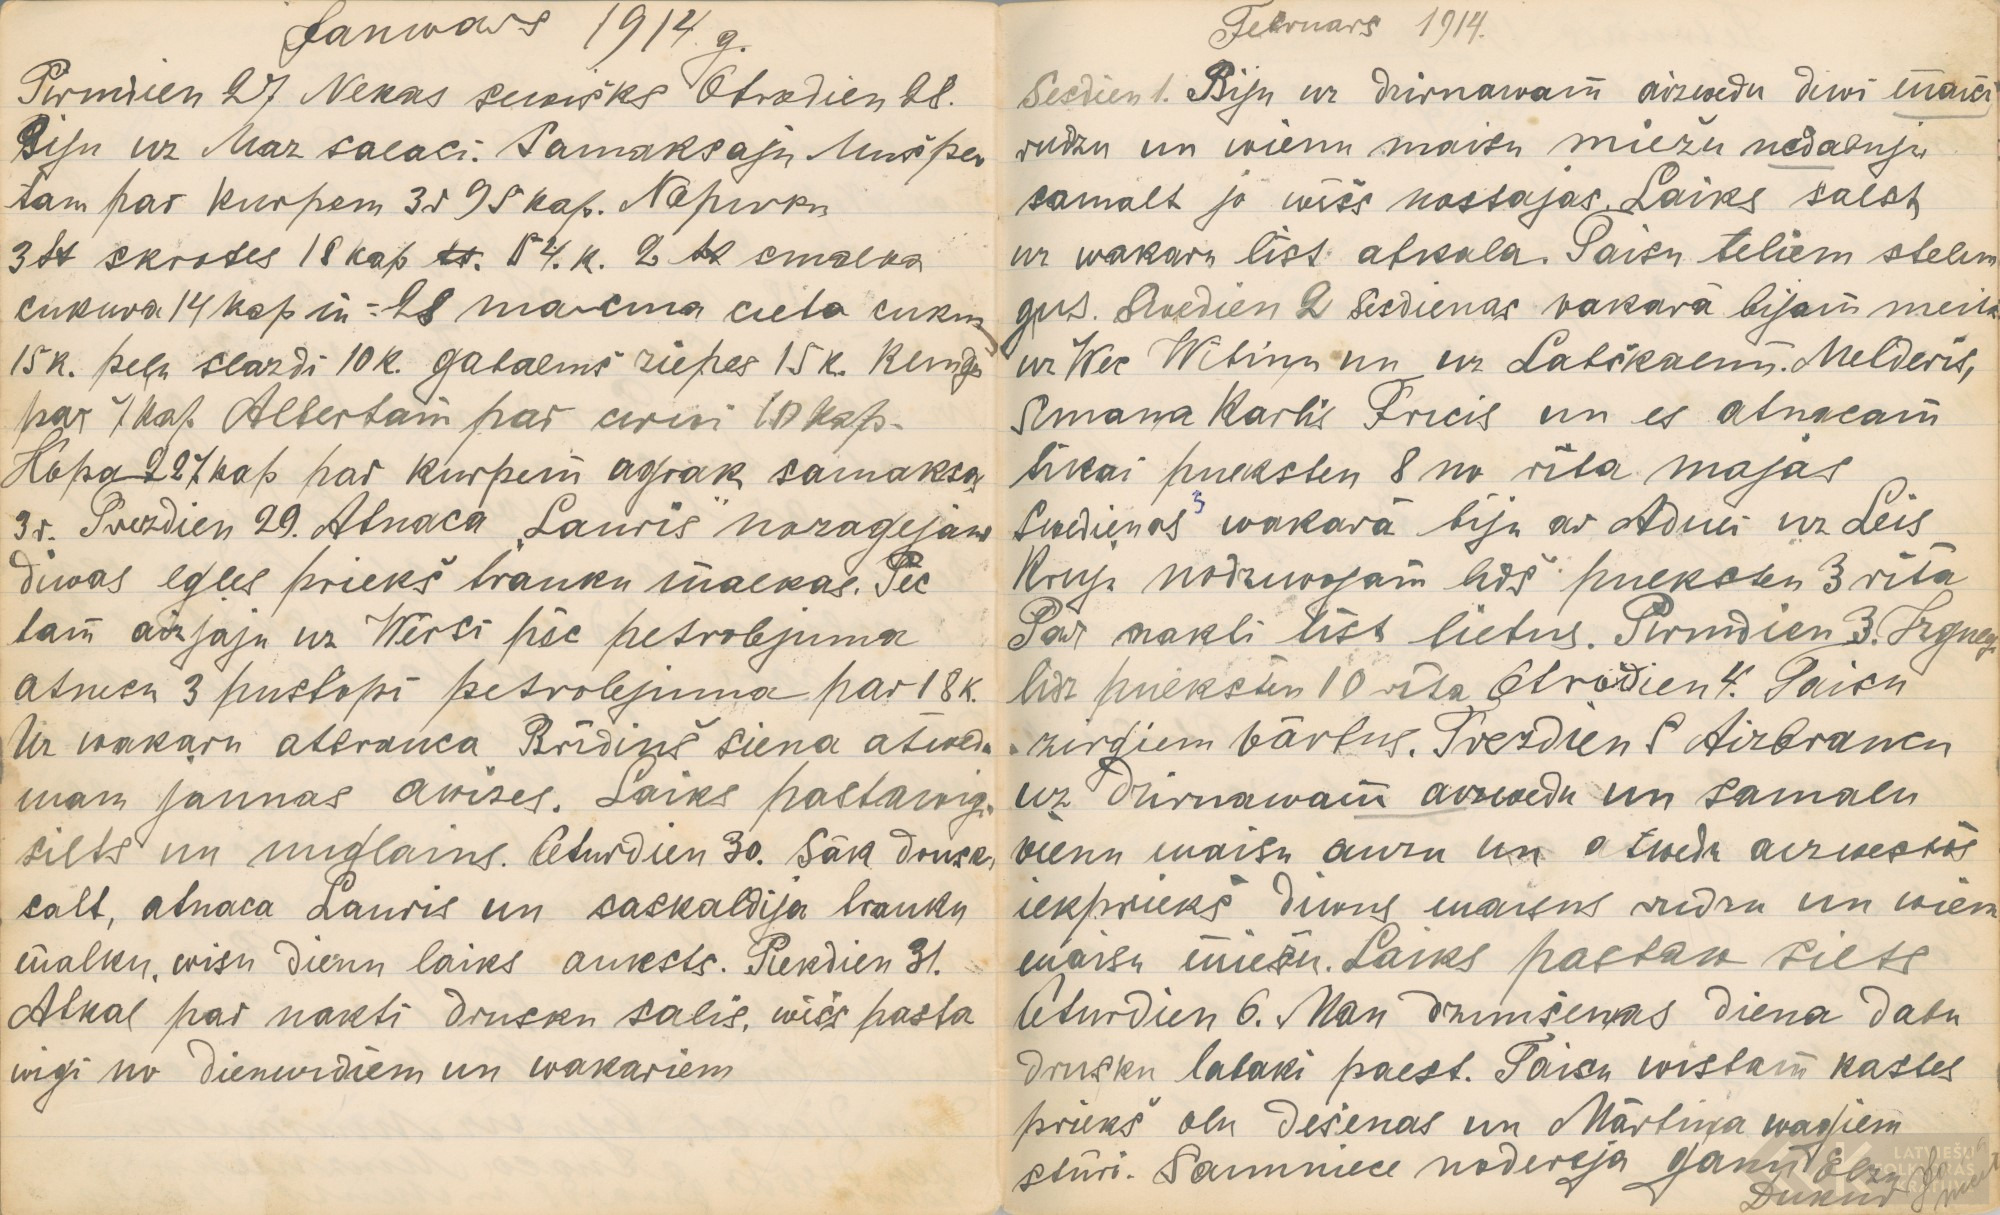 Janwars 1914 g.
Pirmdien 27 Nekas sewišks Otrdien 28.
Biju uz Maz salaci. Samaksaju Mušper
tam par kurpem 3r 95 kap. Nopirku
3 tt skrotes 18 kap tt. 54. k. 2 tt smalka
cukura 14 kap in = 28 marcina cieta cukur
15 k. pelu slazdi 10 k. gabalins ziepes 15 k. Klingu
par 7 kap Albertam̄ par cirwi 10 kap.
Kopa 227 kap par kurpem̄ agrak samaksa
3 r. Trezdien 29. Atnaca „Lauris" nozagejam
diwas egles priekš branku m̄alkas. Pec
tam̄ aizjaju uz Wērsi pēc petrolejuma
atnesu 3 pustopi petrolejuma par 18 k.
Uz wakaru atbrauca Brīdinš siena atweda
mam jaunas awizes. Laiks pastawig
silts un miglains. Ceturdien 30. Sāk drusk
salt, atnaca Lauris un saskaldija branku
m̄alku, wisu dienu laiks auksts. Piekdien 31.
Atkal par nakti drusku salis, wišs pasta
wigi no dienwidiem un wakariem
Februars 1914.
Sesdien 1. Biju uz dzirnawam̄ aizwedu diwi m̄aisi
rudzu un wienu maisu miežu nedabuju
samalt jo wišs nostajas. Laiks salst
uz wakaru list atkala. Taisu teliem stelin
gus. Swedien 2 Sesdienas vakarā bijam̄ meitā
uz Wec Witinu un uz Labškalni. Melderis,
Smana Karlis Fricis un es atnacam̄
tikai pulksten 8 no rīta majās
Swedienas 3 wakarā biju ar Adui uz Leis
Kruju nodziwojam̄ lidš pulksten 3 rīta
Par nakti list lietus. Pirmdien 3.
lidz pulksten 10 rīta Otrdien 4. Taisu
zirgiem bārbus. Trezdien 5 Aizbraucu
uz dzirnawam̄ aizwedu un samalu
vienu maisu auzu un atwedu aizwestos
iekprieks diwus maisus rudzu un wienu
maisu m̄iežu. Laiks pastaw silts
Ceturdien 6. Man dzimšenas diena dabu
drusku labaki paest. Taisu wistam̄ kastes
priekš olu dešenas un Mārtiņa wagiem̄
stūri. Saimniece nodereja ganu Elzu
Dukur
LATVIEŠU
FOLKLORAS
KRĀTUVE